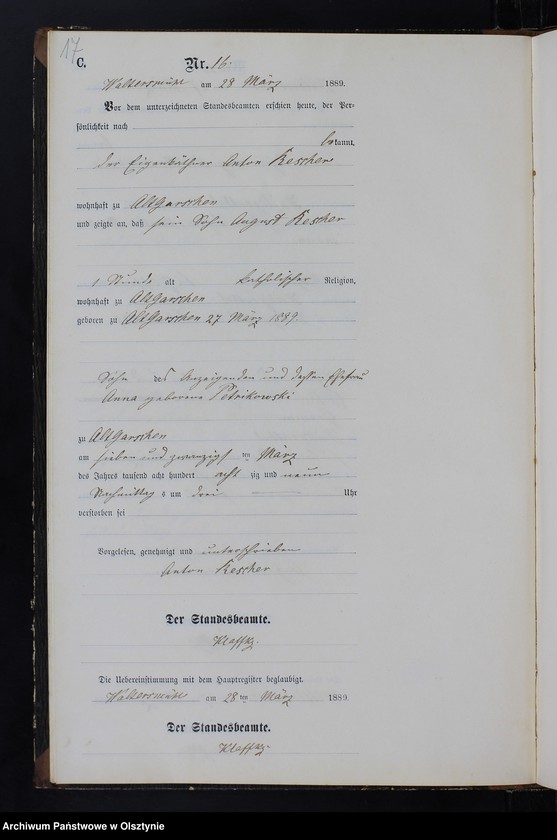 17
C.
Nr. 16.
Waltersmühl am 28 März 1889.
Vor dem unterzeichneten Standesbeamten erschien heute, der Per-
sönlichkeit nach
bekannt,
der Eigenkäthner Anton Kescher
wohnhaft zu AltGarschen
und zeigte an, daß sein Sohn August Kescher
1 Stunde alt katholischer Religion,
wohnhaft zu AltGarschen
geboren zu AltGarschen 27 März 1889.
Sohn des Anzeigenden und dessen Ehefrau
Anna geborene Petrikowski
zu AltGarschen
am sieben und zwanzigsten März
des Jahres tausend acht hundert achtzig und neun
Nachmittags um drei Uhr
verstorben sei
Vorgelesen, genehmigt und unterschrieben
Anton Kescher
Der Standesbeamte.
Klaffky.
Die Uebereinstimmung mit dem Hauptregister beglaubigt.
Waltersmühl am 28ten März 1889.
Der Standesbeamte.
Klaffky.
Archiwum Państwowe w Olsztynie